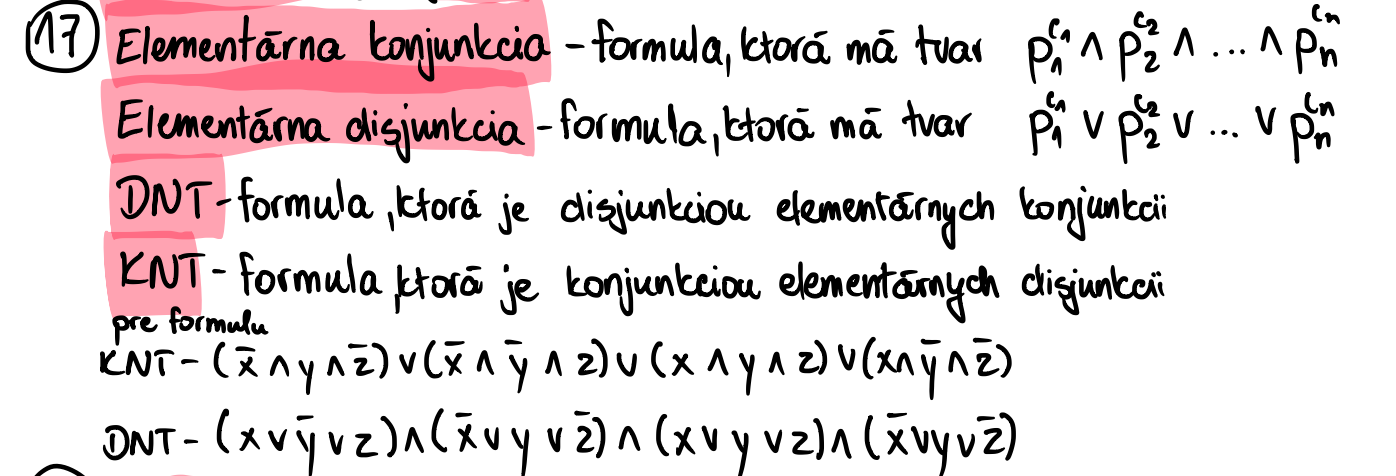 17 Elementárna konjunkcia - formula, ktorá má tvar p₁^c₁ ∧ p₂^c₂ ∧ ... ∧ pₙ^cₙ
Elementárna disjunkcia - formula, ktorá má tvar p₁^c₁ ∨ p₂^c₂ ∨ ... ∨ pₙ^cₙ
DNT - formula, ktorá je disjunkciou elementárnych konjunkcii
KNT - formula, ktorá je konjunkciou elementárnych disjunkcii
pre formulu
KNT - (x̄ ∧ y ∧ z̄) ∨ (x̄ ∧ ȳ ∧ z) ∨ (x ∧ y ∧ z) ∨ (x ∧ ȳ ∧ z̄)
DNT - (x ∨ ȳ ∨ z) ∧ (x̄ ∨ y ∨ z̄) ∧ (x ∨ y ∨ z) ∧ (x̄ ∨ y ∨ z̄)